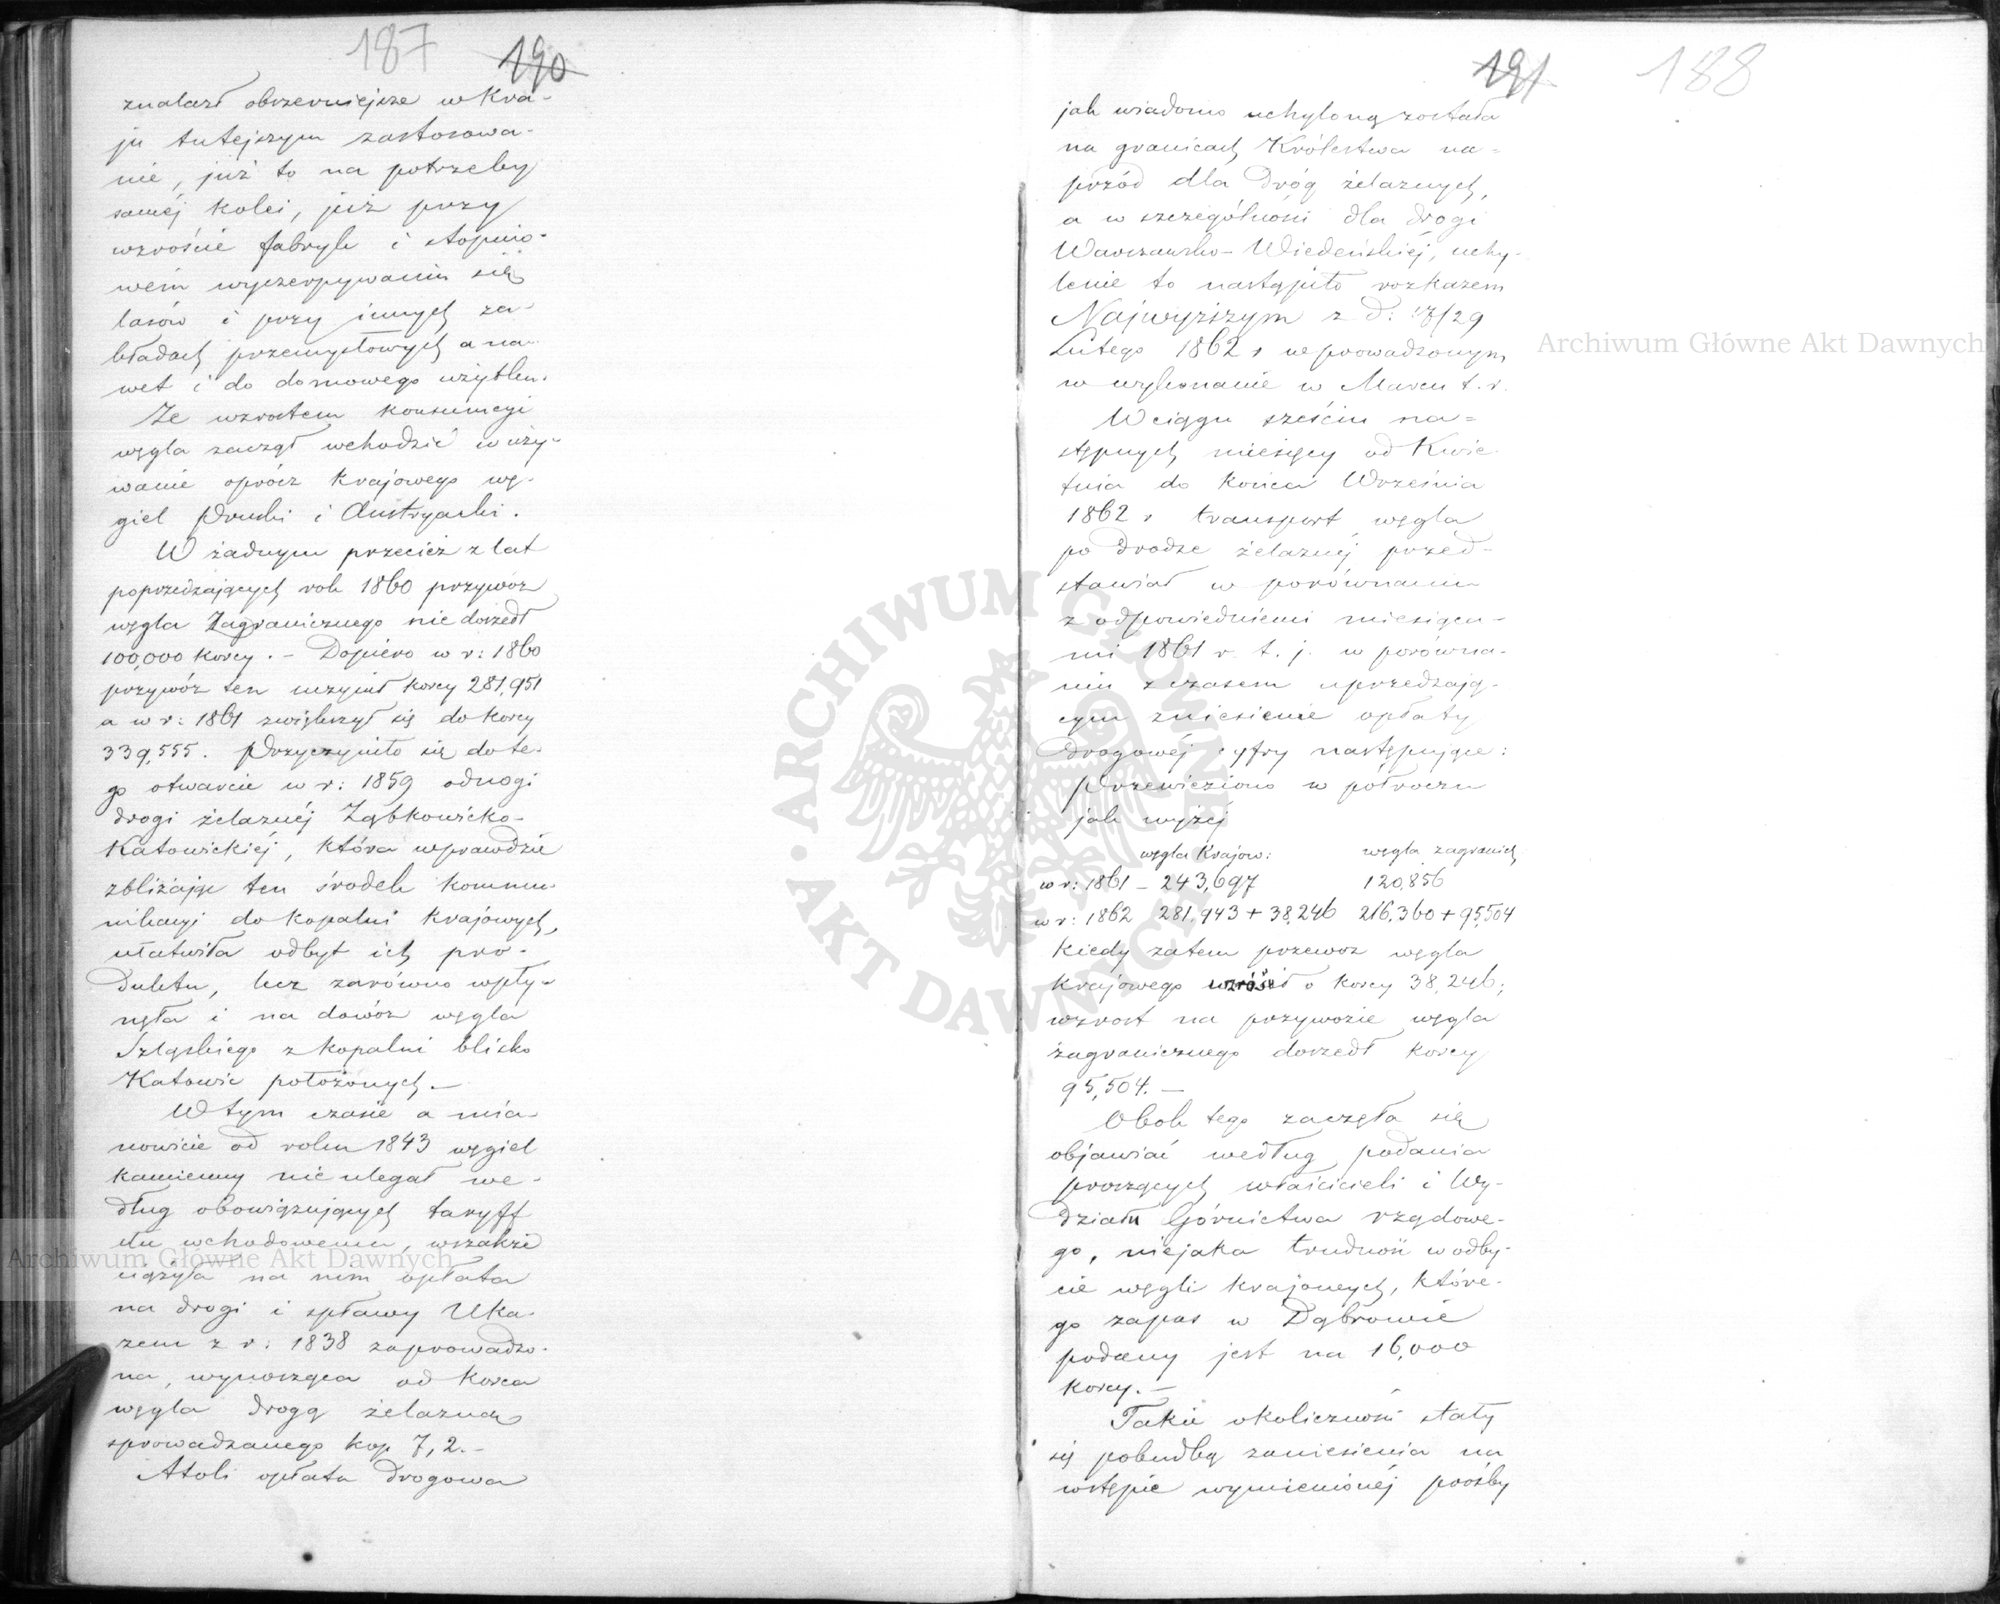 187 190
znalazł obszerniejsze w kra-
ju tutejszym zastosowa-
nie, już to na potrzeby
saméj kolei, już przy
wzroście fabryk i stopnio-
wém wyczerpywaniu się
lasów i przy innych za-
kładach przemysłowych a na-
wet i do domowego użytku.
Ze wzrostem konsumcyi
węgla zaczął wchodzić w uży-
wanie oprócz krajowego wę-
giel Pruski i Austryacki.
W żadnym przecież z lat
poprzedzających rok 1860 przywóz
węgla Zagranicznego nie doszedł
100,000 korcy. – Dopiero w r: 1860
przywóz ten uczynił korcy 281,951
a w r: 1861 zwiększył się do korcy
339,555. Przyczyniło się do te-
go otwarcie w r: 1859 odnogi
drogi żelaznéj Ząbkowicko-
Katowickiéj, która wprawdzie
zbliżając ten środek kommu-
nikacyi do kopalni krajowych,
ułatwiła odbyt ich pro-
duktu, lecz zarówno wpły-
nęła i na dowóz węgla
Szląskiego z kopalni blisko
Katowic położonych. –
W tym czasie a mia-
nowicie od roku 1843 węgiel
kamienny nie ulegał we-
dług obowiązujących taryff
cłu wchodowemu, wszakże
ciążyła na nim opłata
na drogi i spławy Uka-
zem z r: 1838 zaprowadzo-
na, wynosząca od korca
węgla drogą żelazną
sprowadzanego kop 7,2. –
Atoli opłata drogowa
191 188
jak wiadomo uchyloną została
na granicach Królestwa na=
przód dla dróg żelaznych,
a w szczególności dla drogi
Warszawsko-Wiedeńskiéj, uchy-
lenie to nastąpiło rozkazem
Najwyższym z d:
Lutego 1862 r wprowadzonym
w wykonanie w Marcu t. r.
W ciągu sześciu na=
stępnych miesięcy od Kwie-
tnia do końca Września
1862 r transport węgla
po drodze żelaznéj przed-
stawiał w porównaniu
z odpowiedniemi miesiąca-
mi 1861 r. t. j. w porówna-
niu z czasem uprzedzają-
cym zniesienie opłaty
drogowéj cyfry następujące:
Przewieziono w półroczu
jak wyżéj
węgla krajow: węgla zagranich
w r: 1861 – 243,697 120,856
w r: 1862 281,943 + 38,246 216,360 + 95,504
Kiedy zatem przewoz węgla
krajowego wzrósł o korcy 38,246;
wzrost na przywozie węgla
zagranicznego doszedł korcy
95,504. –
Obok tego zaczęła się
objawiać według podania
proszących właścicieli i Wy-
działu Górnictwa rządowe-
go, niejaka trudność w odby-
cie węgli krajowych, które-
go zapas w Dąbrowie
podany jest na 16,000
korcy. –
Takie okoliczności stały
się pobudką zaniesienia na
wstępie wymienionéj prośby
ARCHIWUM GŁÓWNE AKT DAWNYCH
Archiwum Główne Akt Dawnych
Archiwum Główne Akt Dawnych